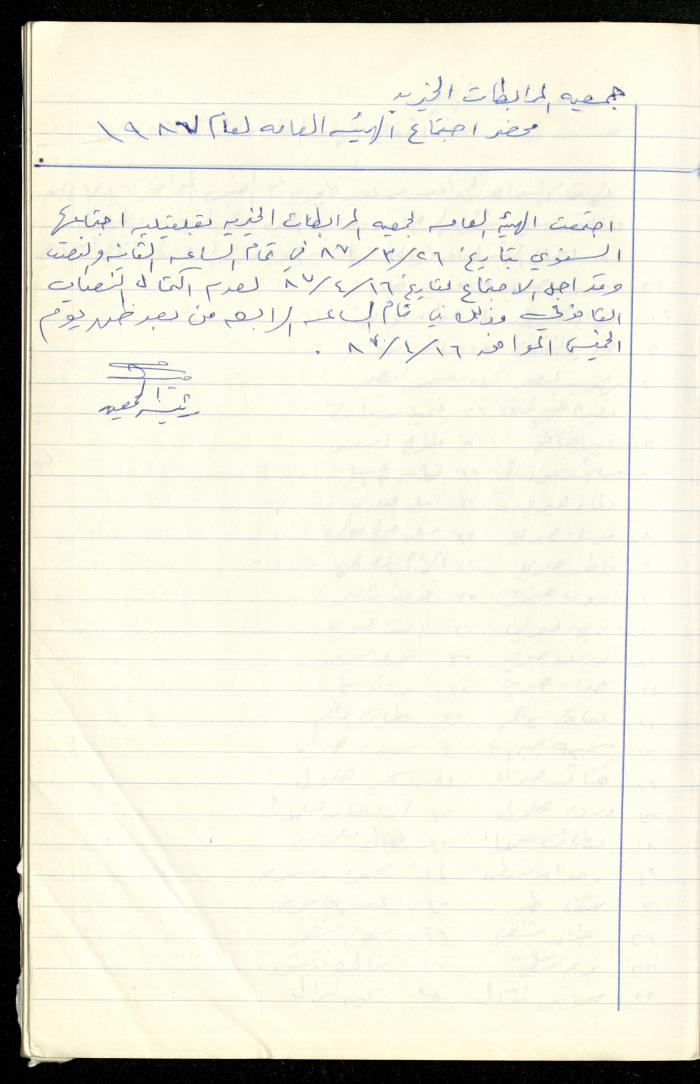 جمعيه المرابطات الخيريه
محضر اجتماع الهيئه العامه لعام ١٩٨٧
اجتمعت الهيئه العامه لجمعيه المرابطات الخيريه بقلقيليه اجتماعها
السنوي بتاريخ ٨٧/٣/٢٦ في تمام الساعه الثانيه والنصف
وقد اجل الاجتماع لتاريخ ٨٧/٤/١٦ لعدم اكتمال النصاب
القانوني وذلك في تمام الساعه الرابعه من بعد ظهر يوم
الخميس الموافق ٨٧/٤/١٦ .
رئيسة الجمعيه